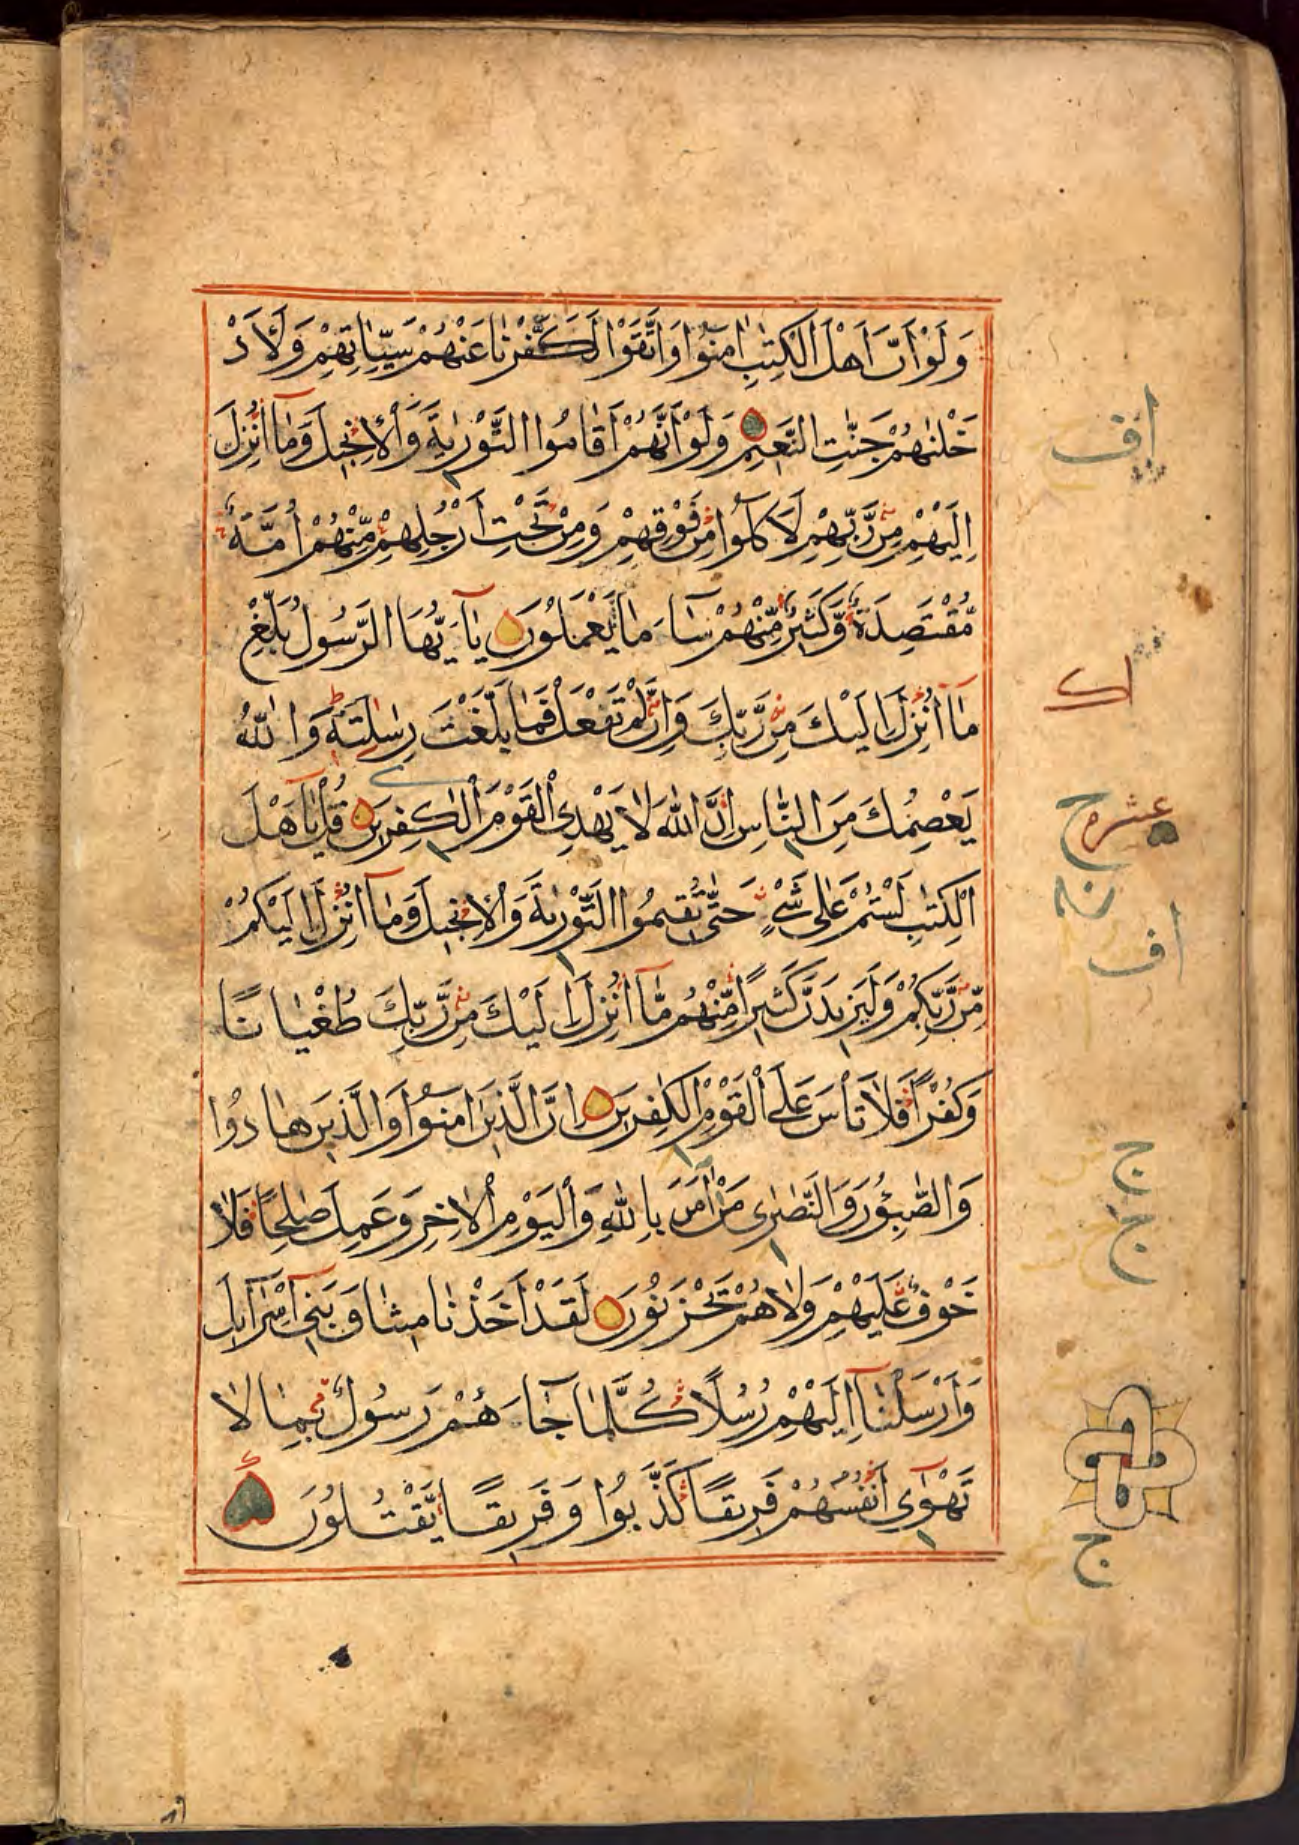 وَلَوْ اَنَّ اَهْلَ الْكِتٰبِ اٰمَنُوا وَاتَّقَوْا لَكَفَّرْنٰا عَنْهُمْ سَيِّـٰٔاتِهِمْ وَلَاَدْ
خَلْنٰهُمْ جَنّٰتِ النَّعٖيمِ وَلَوْ اَنَّهُمْ اَقٰامُوا التَّوْرٰيةَ وَالْاِنْجٖيلَ وَمٰٓا اُنْزِلَ
اِلَيْهِمْ مِنْ رَّبِّهِمْ لَاَكَلُوا مِنْ فَوْقِهِمْ وَمِنْ تَحْتِ اَرْجُلِهِمْ مِّنْهُمْ اُمَّةٌ
مُّقْتَصِدَةٌ وَّكَثٖيرٌ مِّنْهُمْ سَآءَ مٰا يَعْمَلُونَ يٰٓا اَيُّهَا الرَّسُولُ بَلِّغْ
مٰٓا اُنْزِلَ اِلَيْكَ مِنْ رَّبِّكَ وَاِنْ لَّمْ تَفْعَلْ فَمٰا بَلَّغْتَ رِسٰلَتَهٗ وَاللّٰهُ
يَعْصِمُكَ مِنَ النّٰاسِ اِنَّ اللّٰهَ لٰا يَهْدِى الْقَوْمَ الْكٰفِرٖينَ قُلْ يٰٓا اَهْلَ
الْكِتٰبِ لَسْتُمْ عَلٰى شَىْءٍ حَتّٰى تُقٖيمُوا التَّوْرٰيةَ وَالْاِنْجٖيلَ وَمٰٓا اُنْزِلَ اِلَيْكُمْ
مِّنْ رَّبِّكُمْ وَلَيَزٖيدَنَّ كَثٖيرًا مِّنْهُمْ مّٰٓا اُنْزِلَ اِلَيْكَ مِنْ رَّبِّكَ طُغْيٰانًا
وَكُفْرًا فَلٰا تَأْسَ عَلَى الْقَوْمِ الْكٰفِرٖينَ اِنَّ الَّذٖينَ اٰمَنُوا وَالَّذٖينَ هٰادُوا
وَالصّٰبِؤُنَ وَالنَّصٰرٰى مَنْ اٰمَنَ بِاللّٰهِ وَالْيَوْمِ الْاٰخِرِ وَعَمِلَ صٰلِحًا فَلٰا
خَوْفٌ عَلَيْهِمْ وَلٰا هُمْ يَحْزَنُونَ لَقَدْ اَخَذْنٰا مٖيثٰاقَ بَنٖٓى اِسْرَآئٖلَ
وَاَرْسَلْنٰٓا اِلَيْهِمْ رُسُلًا كُلَّمٰا جَآءَهُمْ رَسُولٌ بِمٰا لٰا
تَهْوٰٓى اَنْفُسُهُمْ فَرٖيقًا كَذَّبُوا وَفَرٖيقًا يَّقْتُلُونَ
اف
اك
عشره
ح
اف
ج
ج
ج